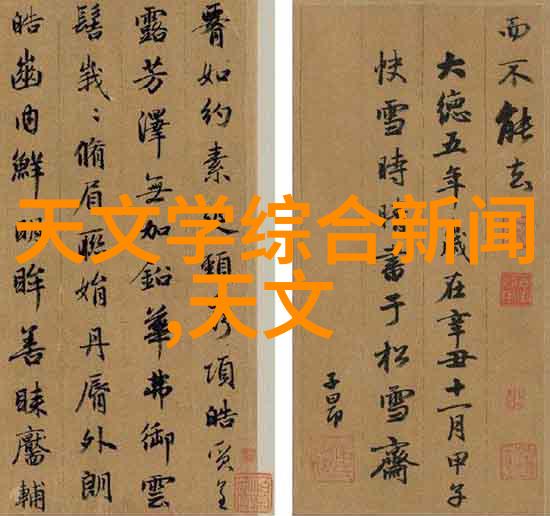 天文学综合新闻
,天文
如約素延頸秀項皓質呈
露芳澤無加鉛華弗御雲
髻峩〻脩眉聯娟丹脣外朗
皓齒内鮮明眸善睞靨輔
而不能去
大德五年歲在辛丑十一月甲子
快雪時晴書于松雪齋
子昂